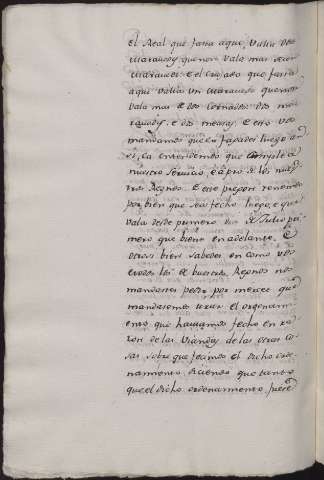 el Real que fasta aqui valia tres
maravedis que non vala mas de un
maravedi: E el Cruzado que fasta
aqui valia un maravedi que non
vala mas de dos Cornados: dos
e dos meajas: E esto vos
mandamos que lo fagades luego
ca entendemos que cumple a
nuestro servicio, e a pro de los nues
tros Regnos. E esto pregon
por bien que sea fecho luego, e que
vala desde primero dia de Julio pri
mero que biene en adelante. E
otrosi bien sabedes en como vos
e todos los de nuestros Regnos nos
mandastes pedir por merced que
mandasemos tirar el ordenam
iento que haviamos fecho en ra
zon de las Viandas de las otras Co
sas sobre que fecimos el dicho orde
namiento diciendo que tanto
que el dicho ordenamiento fuere